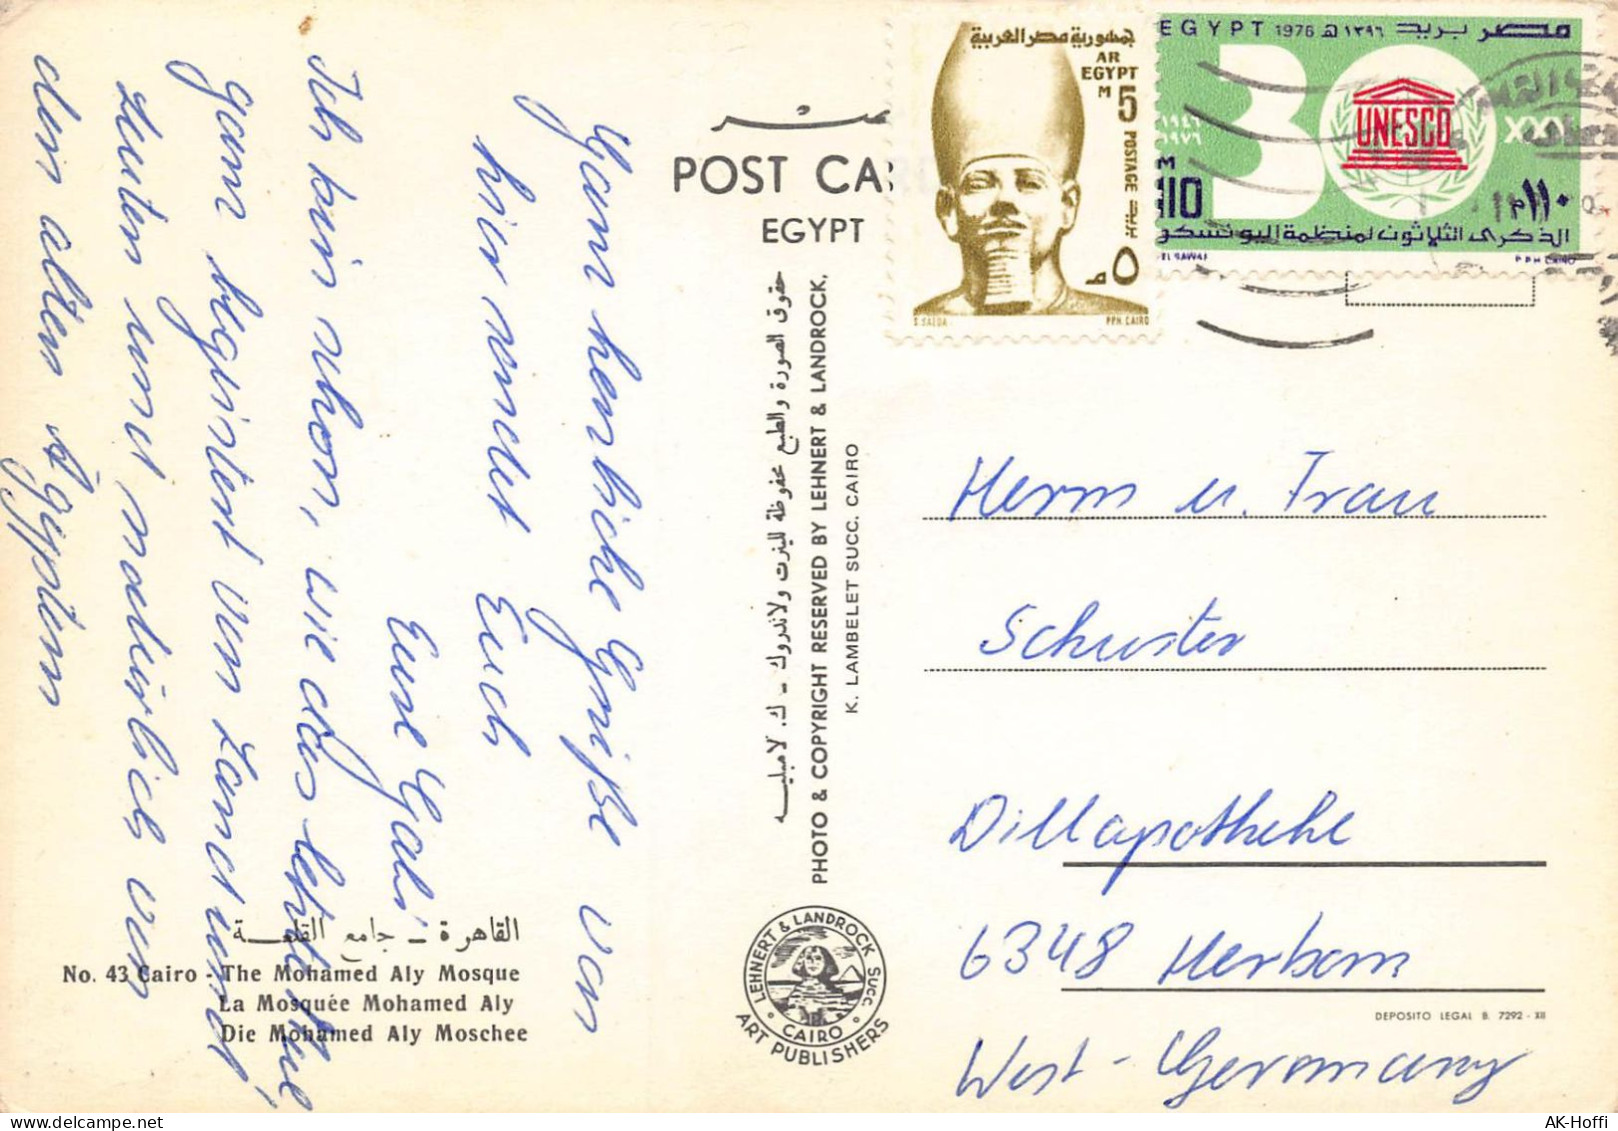 Ganz herzliche Grüße von
hier sendet Euch
Eure Gabi
Ich bin schon, wie das letzte Mal
ganz begeistert von Land und
Leuten und natürlich von
den alten Ägyptern
القاهرة - جامع القلعة
No. 43 Cairo - The Mohamed Aly Mosque
La Mosquée Mohamed Aly
Die Mohamed Aly Moschee
مصر
POST CA
EGYPT
حقوق الصورة والطبع محفوظة للينرت ولاندروك - ك. لامبليه
PHOTO & COPYRIGHT RESERVED BY LEHNERT & LANDROCK,
K. LAMBELET SUCC. CAIRO
LEHNERT & LANDROCK SUCC.
CAIRO
ART PUBLISHERS
جمهورية مصر العربية
AR
EGYPT
M 5
POSTAGE
٥ م
S. SAEDA
P.P.H. CAIRO
EGYPT 1976 ١٣٩٦ هـ بريد مصر
30
UNESCO
XXX
١٩٤٦
١٩٧٦
M
110
١١٠ م
الذكرى الثلاثون لمنظمة اليونسكو
EL SAWAF
P.P.H. CAIRO
Herrn u. Frau
Schuster
Dillapotheke
6348 Herborn
West-Germany
DEPOSITO LEGAL B. 7292 - XII
AK-Hoffi